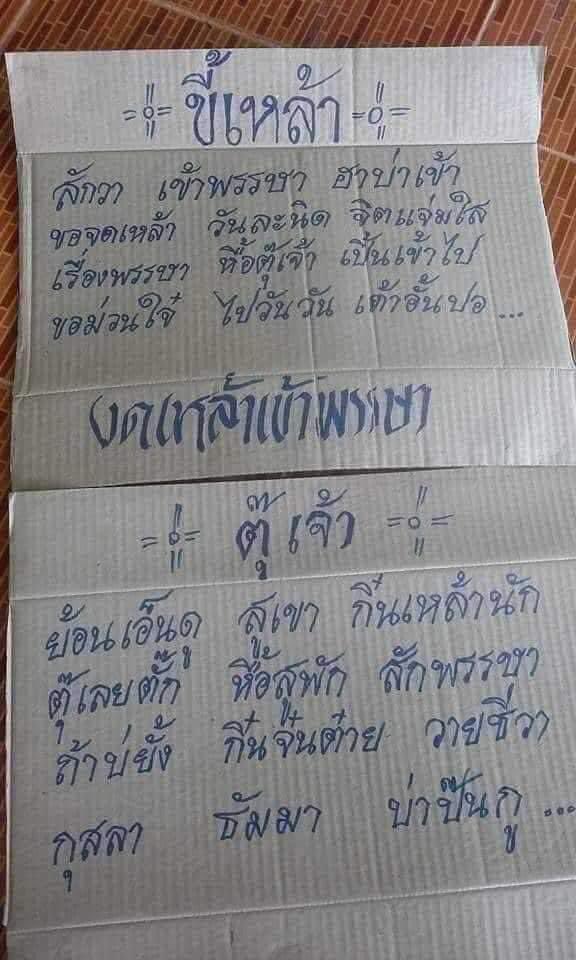 ขี้เหล้า
สักวา เข้าพรรษา ฮาบ่าเข้า
ขอจดเหล้า วันละนิด จิตแจ่มใส
เรื่องพรรษา หื้อตุ๊เจ้า เปิ้นเข้าไป
ขอม่วนใจ๋ ไปวันวัน เต้าอั้นปอ ...
งดเหล้าเข้าพรรษา
ตุ๊เจ้า
ย้อนเอ็นดู สูเขา กิ๋นเหล้านัก
ตุ๊เลยตั๊ก หื้อสูพัก สักพรรษา
ถ้าบ่ยั้ง กิ๋นจ๋นต๋าย วายชีวา
กุสลา ธัมมา บ่าป๊นกู ...